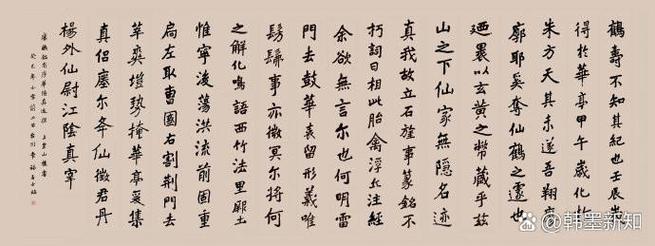 鶴壽不知其紀也壬辰歲
得於華亭甲午歲化於
朱方天其未遂吾翔寥
廓耶奚奪仙鶴之遽也
廼裹以玄黃之幣藏乎茲
山之下仙家無隱名迹
真我故立石旌事篆銘不
朽詞曰相此胎禽浮丘注經
余欲無言尔也何明雷
門去鼓華表留形義唯
髣髴事亦微冥尔將何
之解化鳴語西竹法里厥土
惟寧後蕩洪流前固重
扃左取曹國右割荆門去
莘爽塏勢掩華亭爰集
真侶瘞尔夅仙徵君丹
楊外仙尉江陰真宰
華陽真逸撰 上皇山樵書
韩墨新知